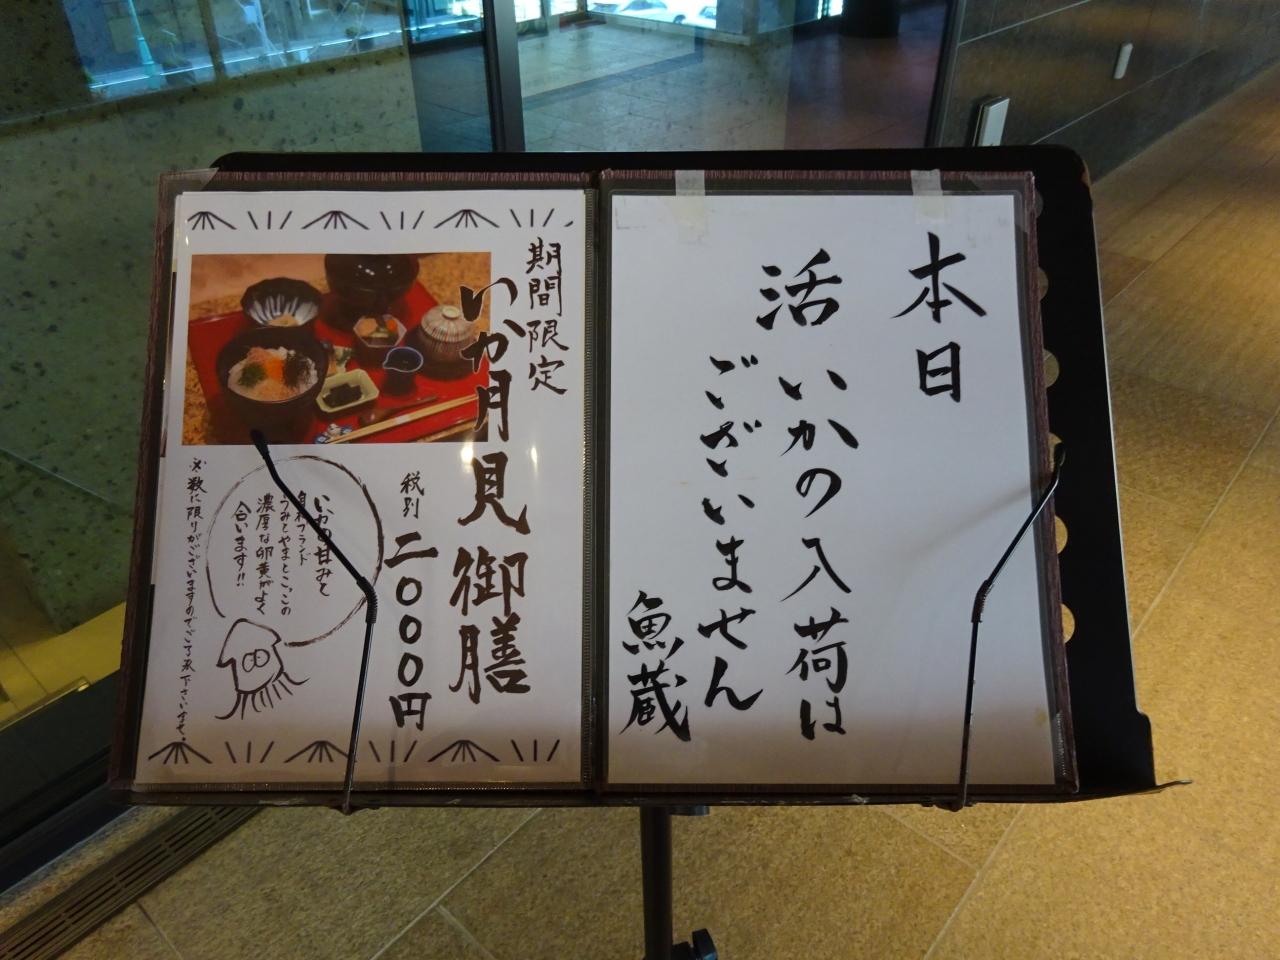 本日
活いかの入荷は
ございません
魚蔵
期間限定
いか月見御膳
税別 二〇〇〇円
いかの甘みと
うみとやまとこっこの
濃厚な卵黄がよく
合います!!
※数に限りがございますのでご了承下さいませ。